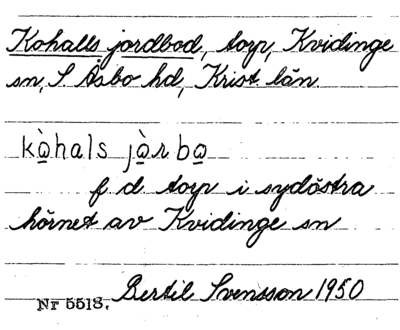 Kohalls jordbod, torp, Kvidinge
sn, S. Åsbo hd, Krist. län.
kò̱hals jò̱rbo̱
f d torp i sydöstra
hörnet av Kvidinge sn
Bertil Svensson 1950
Nr 5518.